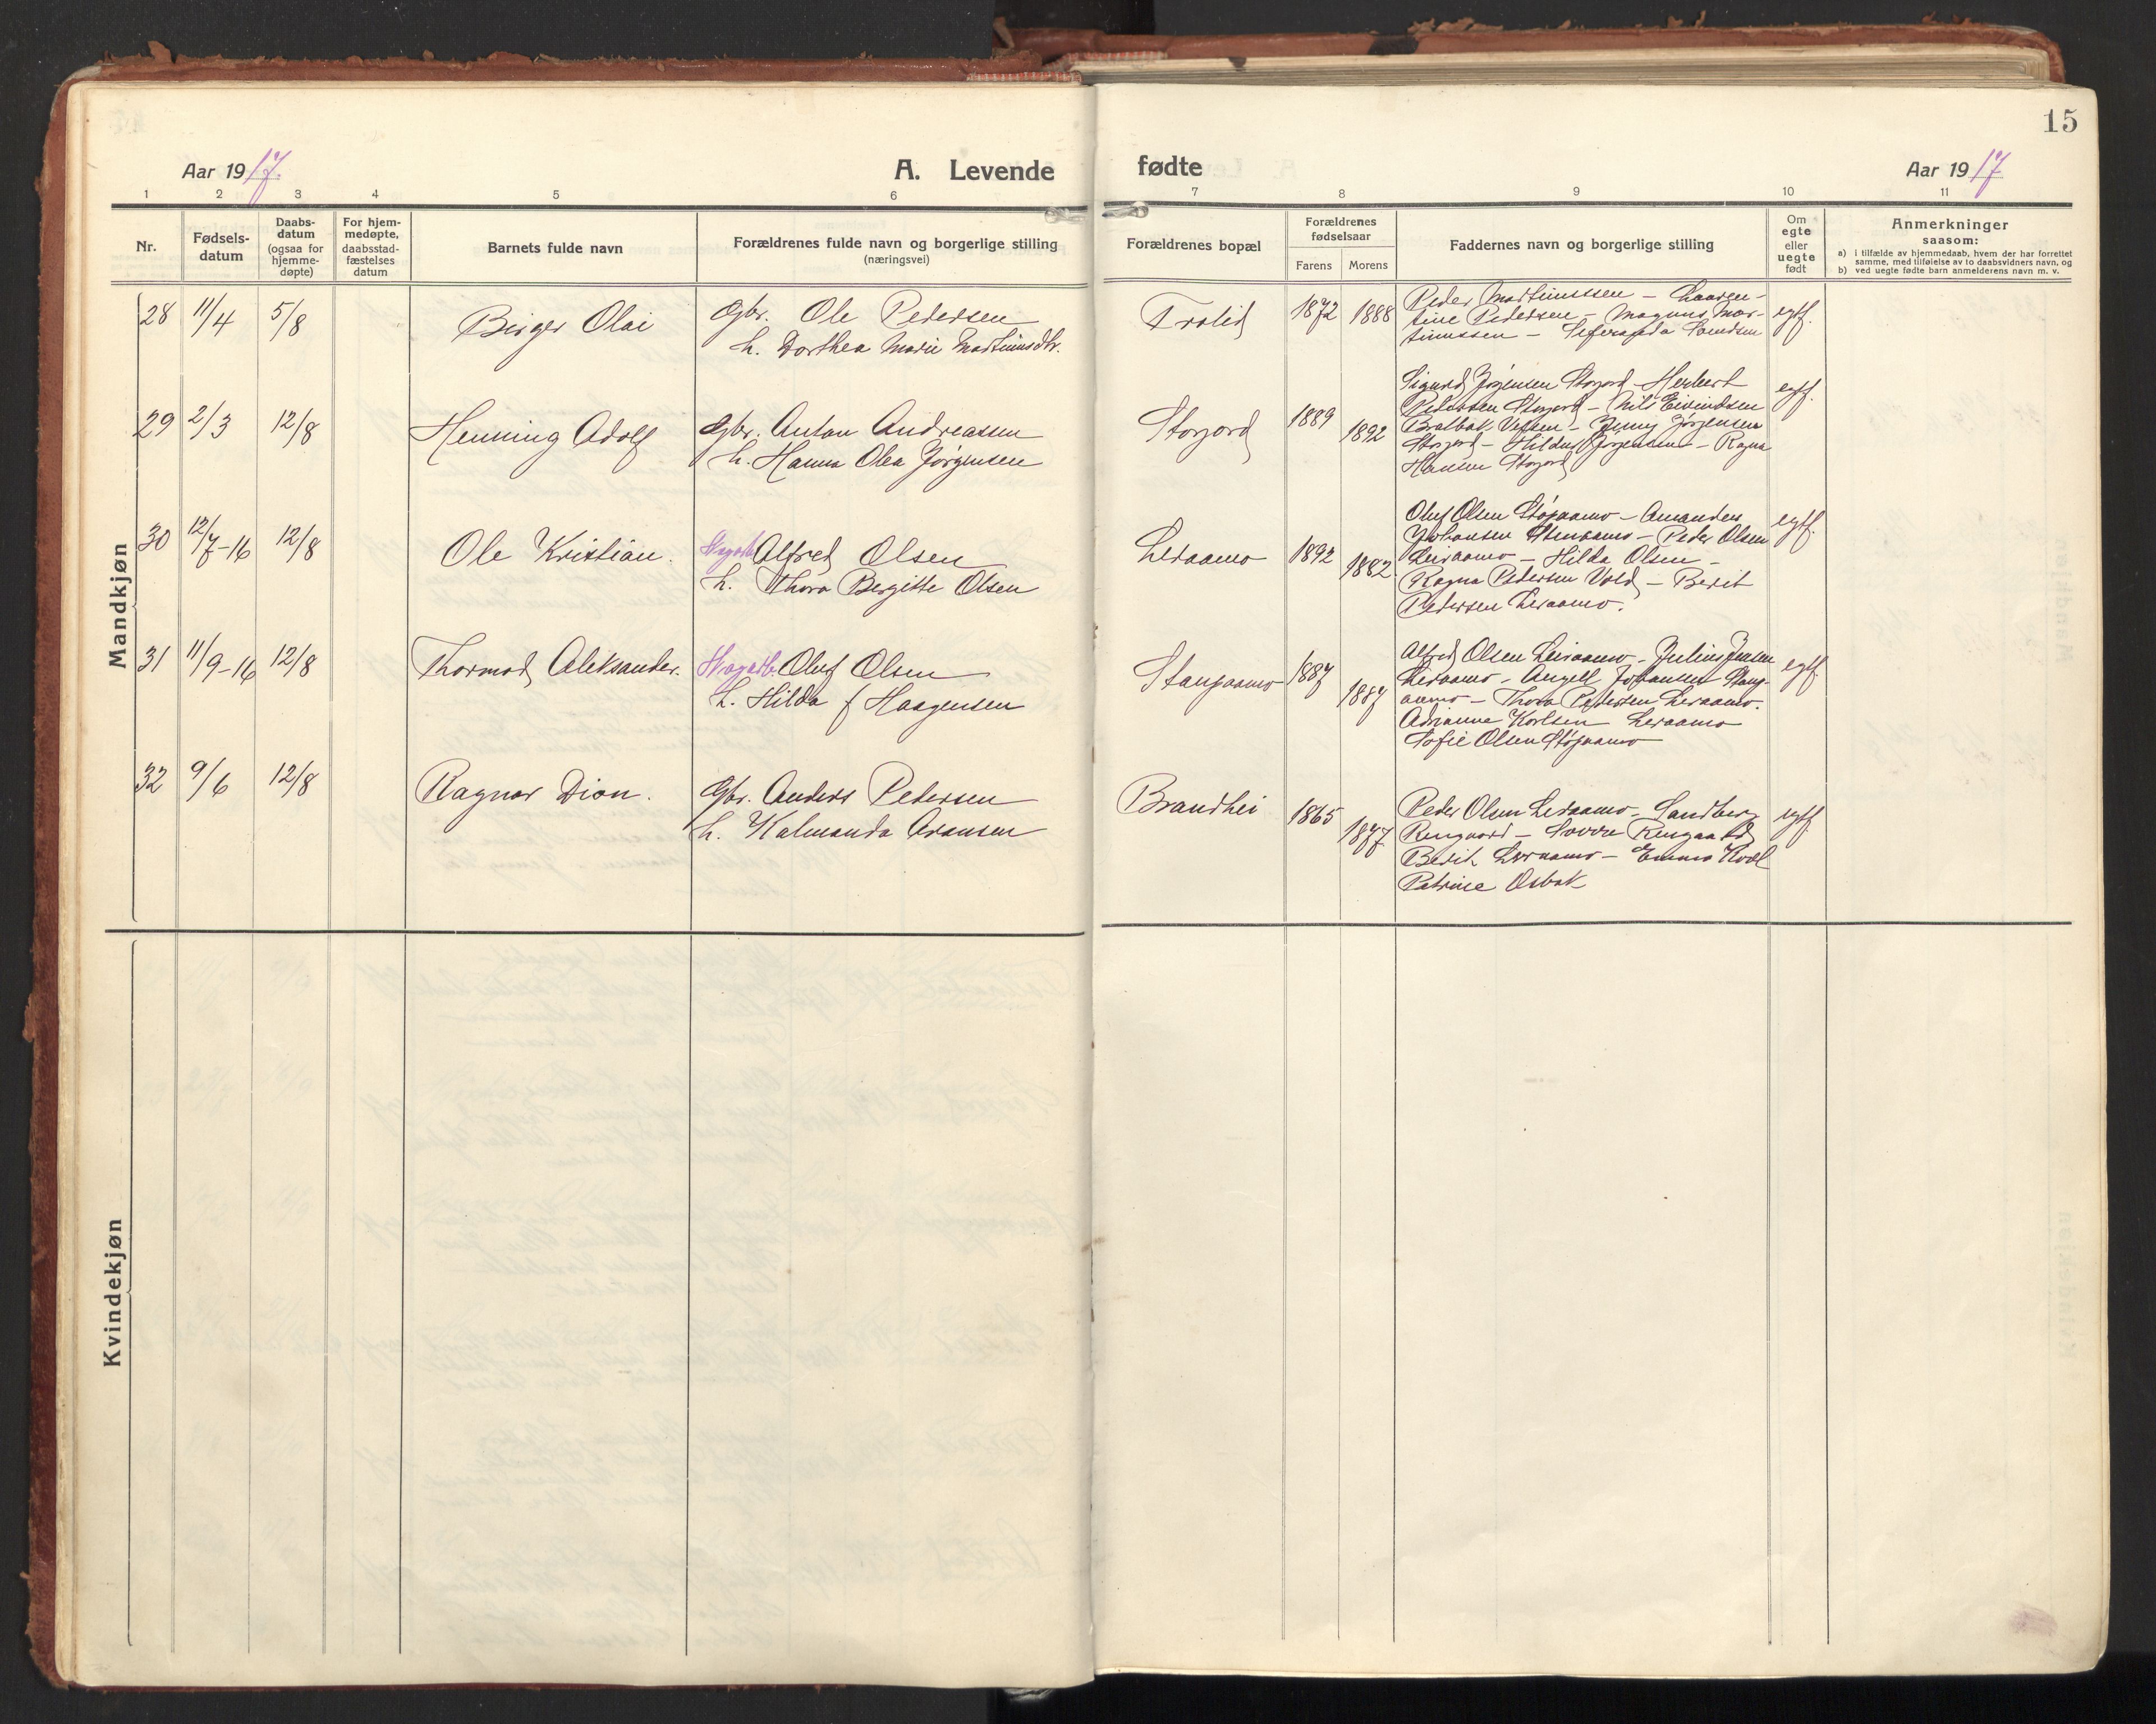 15
Aar 1917.
A. Levende
fødte
Aar 1917
1 2 3 4 5 6
7 8 9 10 11
Nr.
Fødsels-
datum
Daabs-
datum
(ogsaa for
hjemme-
døpte)
For hjem-
medøpte,
daabsstad-
fæstelses
datum
Barnets fulde navn
Forældrenes fulde navn og borgerlige stilling
(næringsvei)
Forældrenes bopæl
Forældrenes
fødselsaar
Farens Morens
Faddernes navn og borgerlige stilling
Om
egte
eller
uegte
født
Anmerkninger
saasom:
a) i tilfælde av hjemmedaab, hvem der har forrettet
samme, med tilføielse av to daabsvidners navn, og
b) ved uegte fødte barn anmelderens navn m. v.
Mandkjøn
28 11/4 5/8
Birger Olai
Gbr. Ole Pedersen
h. Dorthea Marie Martinusdtr.
Trolid
1872 1888
Peder Martinussen – Lauren-
tine Pedersen – Magnus Mar-
tinussen –
egtf.
29 2/3 12/8
Henning Adolf
Gbr. Anton Andreassen
h. Hanna Olea Jørgensen
Storjord
1889 1892
Sigurd Jørgensen Storjord – Herbert
Pedersen Storjord – Nils Eivindsen
Jenny Jørgensen
Storjord – Hildur Jørgensen – Ragna
Hansen Storjord
egtf.
30 12/7-16 12/8
Ole Kristian.
Alfred Olsen
h. Thora Bergitte Olsen
Leraamo
1892 1882
Oluf Olsen – Amandus
Johansen – Peder Olsen
Leiraamo – Hilda Olsen –
Ragna Pedersen Vold – Berit
Pedersen Leraamo.
egtf.
31 11/9-16 12/8
Thormod Aleksander.
Oluf Olsen
h. Hilda f Haagensen
1887 1887
Alfred Olsen Leiraamo – Julius Jensen
Leraamo – Angell Johansen Stang-
aamo – Thora Pedersen Leraamo.
Adrianne Karlsen Leraamo
Sofie Olsen
egtf.
32 9/6 12/8
Ragnar Dion.
Gbr. Anders Pedersen
h. Kalmanda Aransen
Brandhei
1865 1877
Peder Olsen Leraamo – Sandberg
Rengaard – Rengaard
Berit Leraamo – Emma Kvæl
Petrine Osbak
egtf.
Kvindekjøn